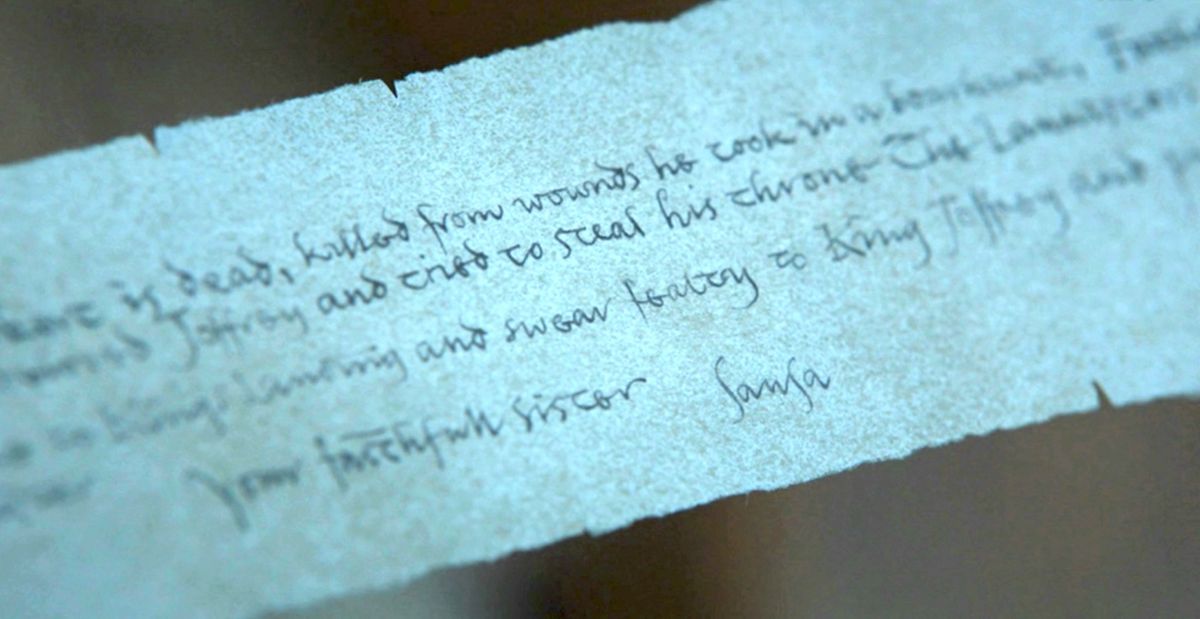 is dead, killed from wounds he took in a boar hunt, Father
Joffrey and tried to steal his throne The Lannisters
to Kings Landing and swear fealty to King Joffrey and
your faithfull sister Sansa